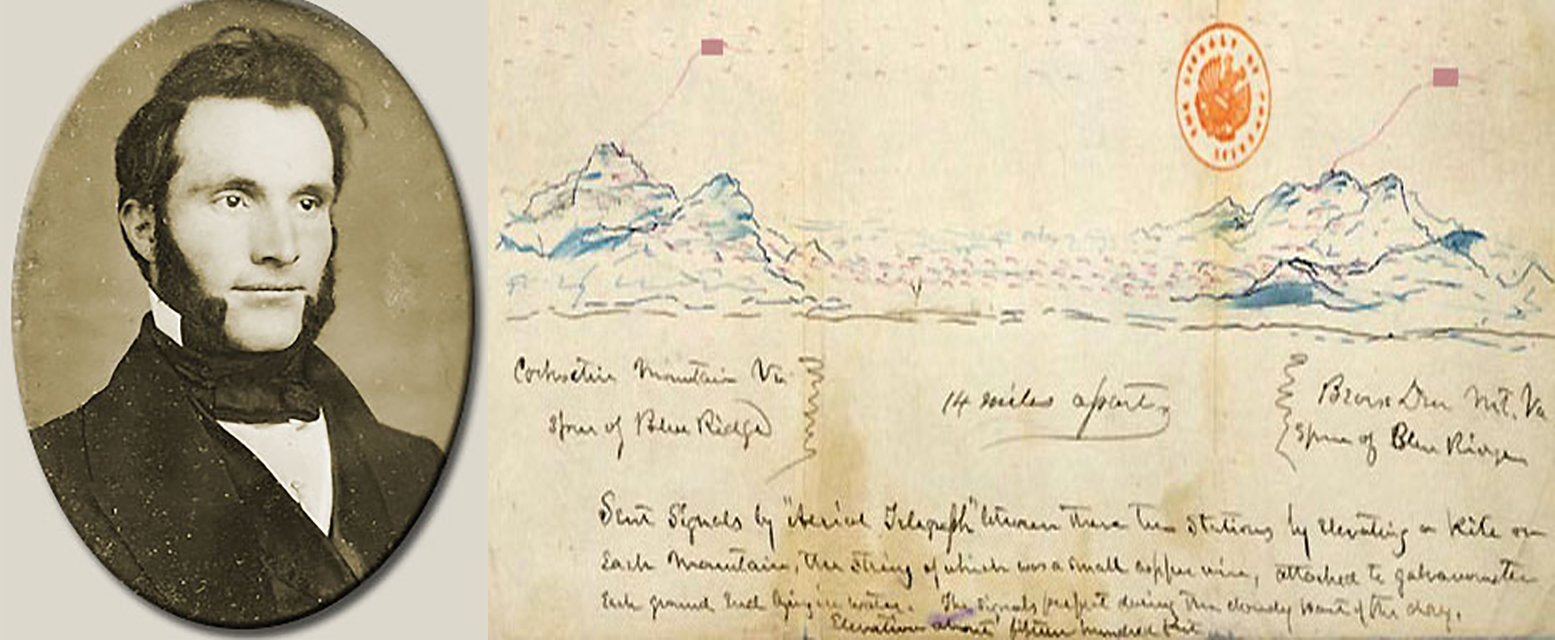 LIBRARY OF
Cohoctin Mountain Va
Spur of Blue Ridge
14 miles apart
Bear Den Mt. Va
Spur of Blue Ridge
Sent Signals by "Aerial Telegraph" between these two Stations by Elevating a Kite on
Each Mountain, the String of which was a small copper wire, attached to galvanometer
Each ground End lying in water. The Signals perfect during the cloudy part of the day.
Elevation about fifteen hundred feet